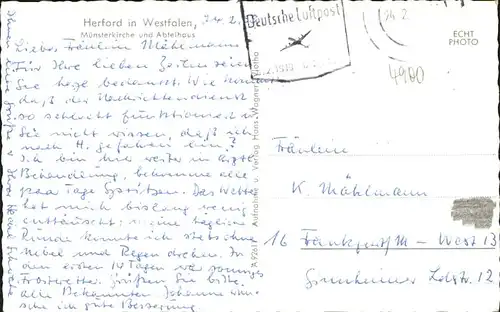 Herford in Westfalen, 24.2.
Münsterkirche und Abteihaus
Liebe Fräulein Mühlmann
Für Ihre lieben Zeilen seien
Sie herzl. bedankt. Wie kommt
daß der Nachrichtendienst
so schlecht funktioniert u.
Sie nicht wissen, daß ich
nach H. gefahren bin?
Ich bin hier weiter in ärztl.
Behandlung, bekomme alle
paar Tage Spritzen. Das Wetter
hat mich bislang wenig
enttäuscht: meine tägliche
Runde konnte ich stets ohne
Nebel und Regen drehen. In
den ersten 14 Tagen war
Frostwetter. Grüßen Sie bitte
alle Bekannten
sche ich gute Besserung.
Aufnahme u. Verlag Hans Wagner, Vlotho
Deutsche Luftpost
24.2.
ECHT
PHOTO
4900
Fräulein
K. Mühlmann
16 Frankfurt/M - West 13
Ginnheimer Ldstr. 12